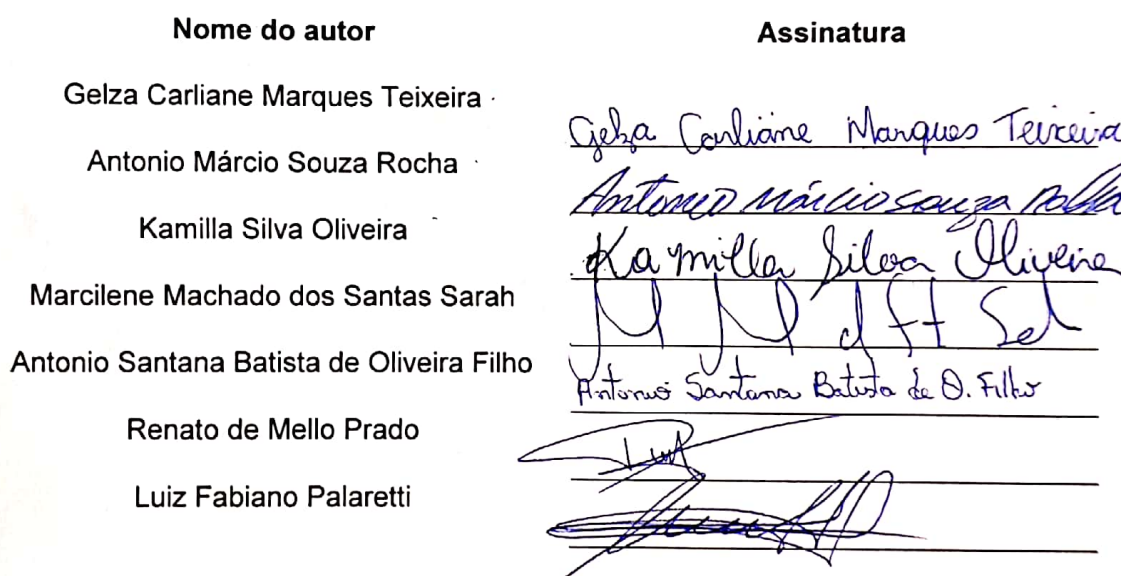 Nome do autor Assinatura
Gelza Carliane Marques Teixeira Gelza Carliane Marques Teixeira
Antonio Márcio Souza Rocha Antonio Márcio Souza Rocha
Kamilla Silva Oliveira Kamilla Silva Oliveira
Marcilene Machado dos Santas Sarah
Antonio Santana Batista de Oliveira Filho Antonio Santana Batista de O. Filho
Renato de Mello Prado
Luiz Fabiano Palaretti